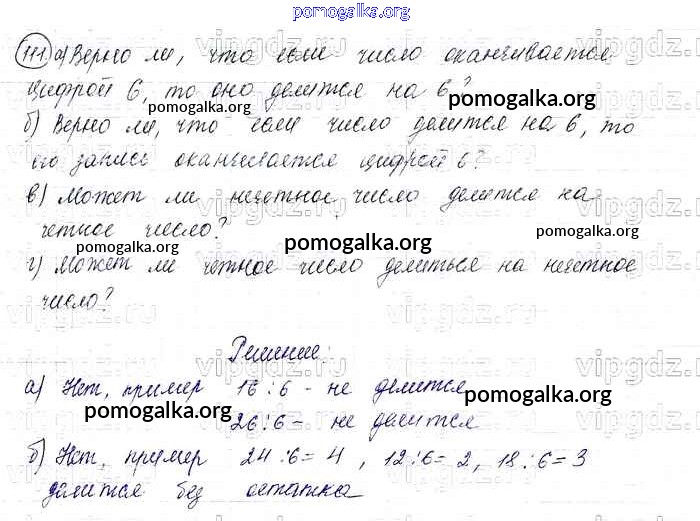 pomogalka.org
111. а) Верно ли, что если число оканчивается
цифрой 6, то оно делится на 6?
pomogalka.org pomogalka.org
б) Верно ли, что если число делится на 6, то
его запись оканчивается цифрой 6?
в) Может ли нечетное число делится на
четное число?
pomogalka.org pomogalka.org pomogalka.org
г) Может ли четное число делиться на нечетное
число?
Решение:
а) Нет, пример 16:6 – не делится
pomogalka.org pomogalka.org
26:6 – не делится
б) Нет, пример 24:6=4, 12:6=2, 18:6=3
делится без остатка
pomogalka.org pomogalka.org
vipgdz.ru